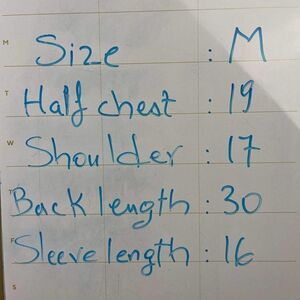 M
Size : M
T
Half chest : 19
W
Shoulder : 17
T
Back length : 30
F
Sleeve length : 16
S